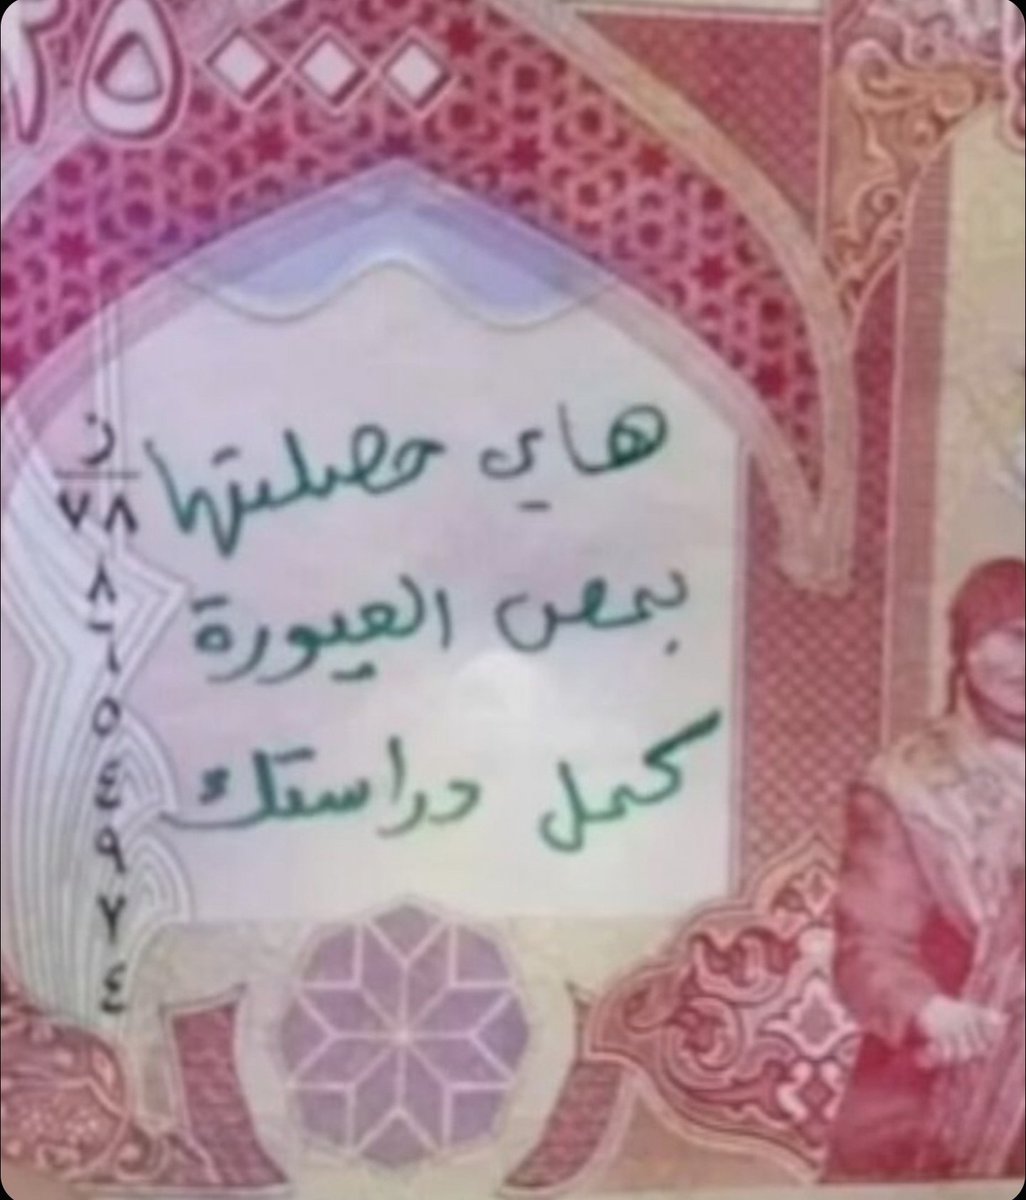 ٢٥٠٠٠
هاي حصلتها
بمص العيورة
كمل دراستك
ن
٧٨
٨
٠
١
٥
٤
٩
٧
٤